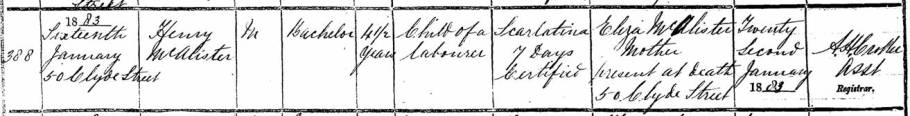 Street
1883
388
Sixteenth
January
50 Clyde Street
Henry
McAlister
M
Bachelor
4½
Years
Child of a
labourer
Scarlatina
7 Days
Certified
Eliza McAlister
Mother
present at death
50 Clyde Street
Twenty
Second
January
1883
Asst
Registrar.